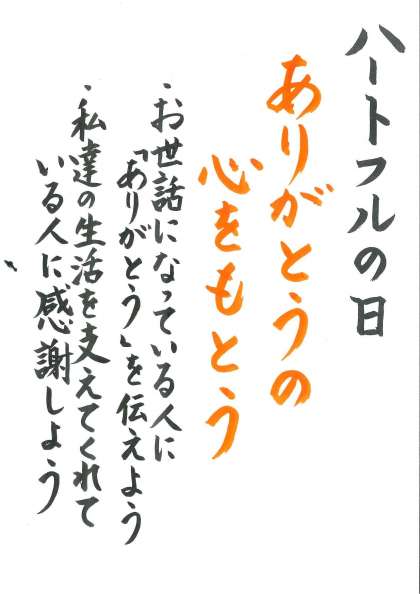 ハートフルの日
ありがとうの
心をもとう
・お世話になっている人に
「ありがとう」を伝えよう
・私達の生活を支えてくれて
いる人に感謝しよう